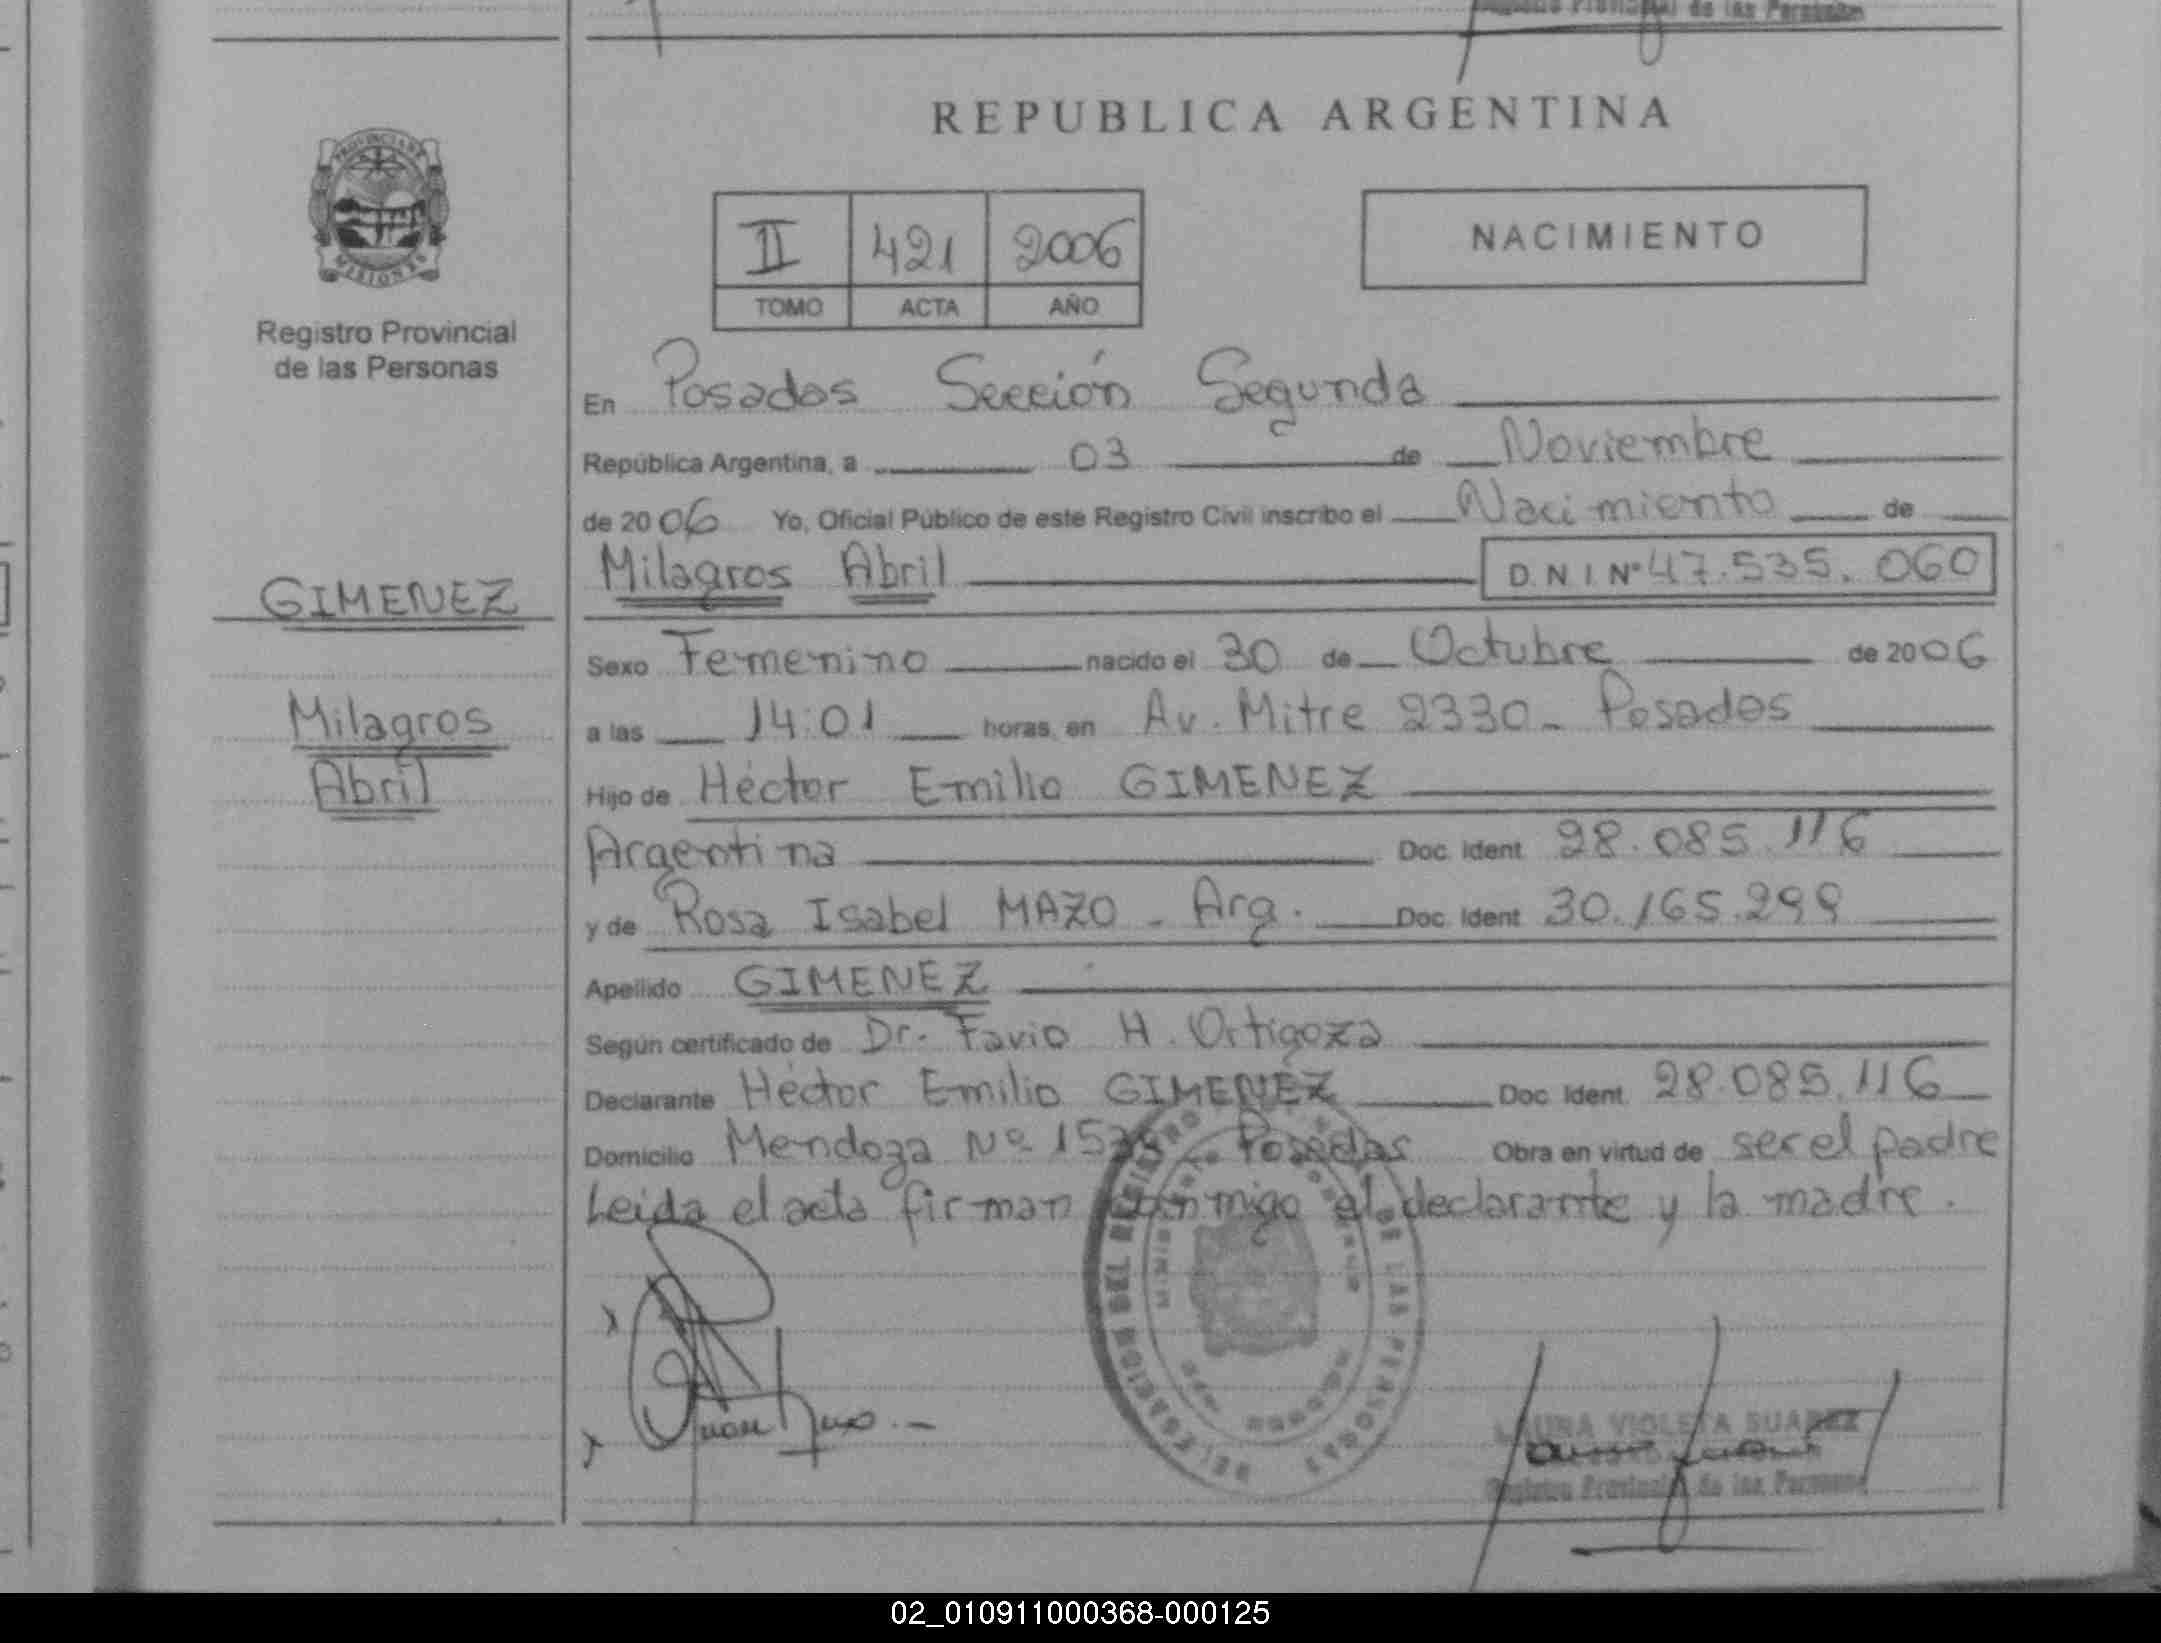 REPUBLICA ARGENTINA
PROVINCIA DE
MISIONES
Registro Provincial
de las Personas
II 421 2006
TOMO ACTA AÑO
NACIMIENTO
En Posadas Sección Segunda
República Argentina, a 03 de Noviembre
de 2006 Yo, Oficial Público de este Registro Civil inscribo el Nacimiento de
Milagros Abril D.N.I. Nº 47.535.060
GIMENEZ
Milagros
Abril
Sexo Femenino nacido el 30 de Octubre de 2006
a las 14:01 horas, en Av. Mitre 2330 - Posadas
Hijo de Héctor Emilio GIMENEZ
Argentina Doc. Ident. 28.085.116
y de Rosa Isabel MAZO - Arg. Doc. Ident. 30.165.299
Apellido GIMENEZ
Según certificado de Dr. Favio H. Ortigoza
Declarante Héctor Emilio GIMENEZ Doc. Ident. 28.085.116
Domicilio Mendoza Nº Posadas Obra en virtud de ser el padre
Leida el acta firman conmigo el declarante y la madre.
DELEGACION DEL REGISTRO DE LAS PERSONAS
LAURA VIOLETA SUAREZ
Registro Provincial de las Personas
02_010911000368-000125